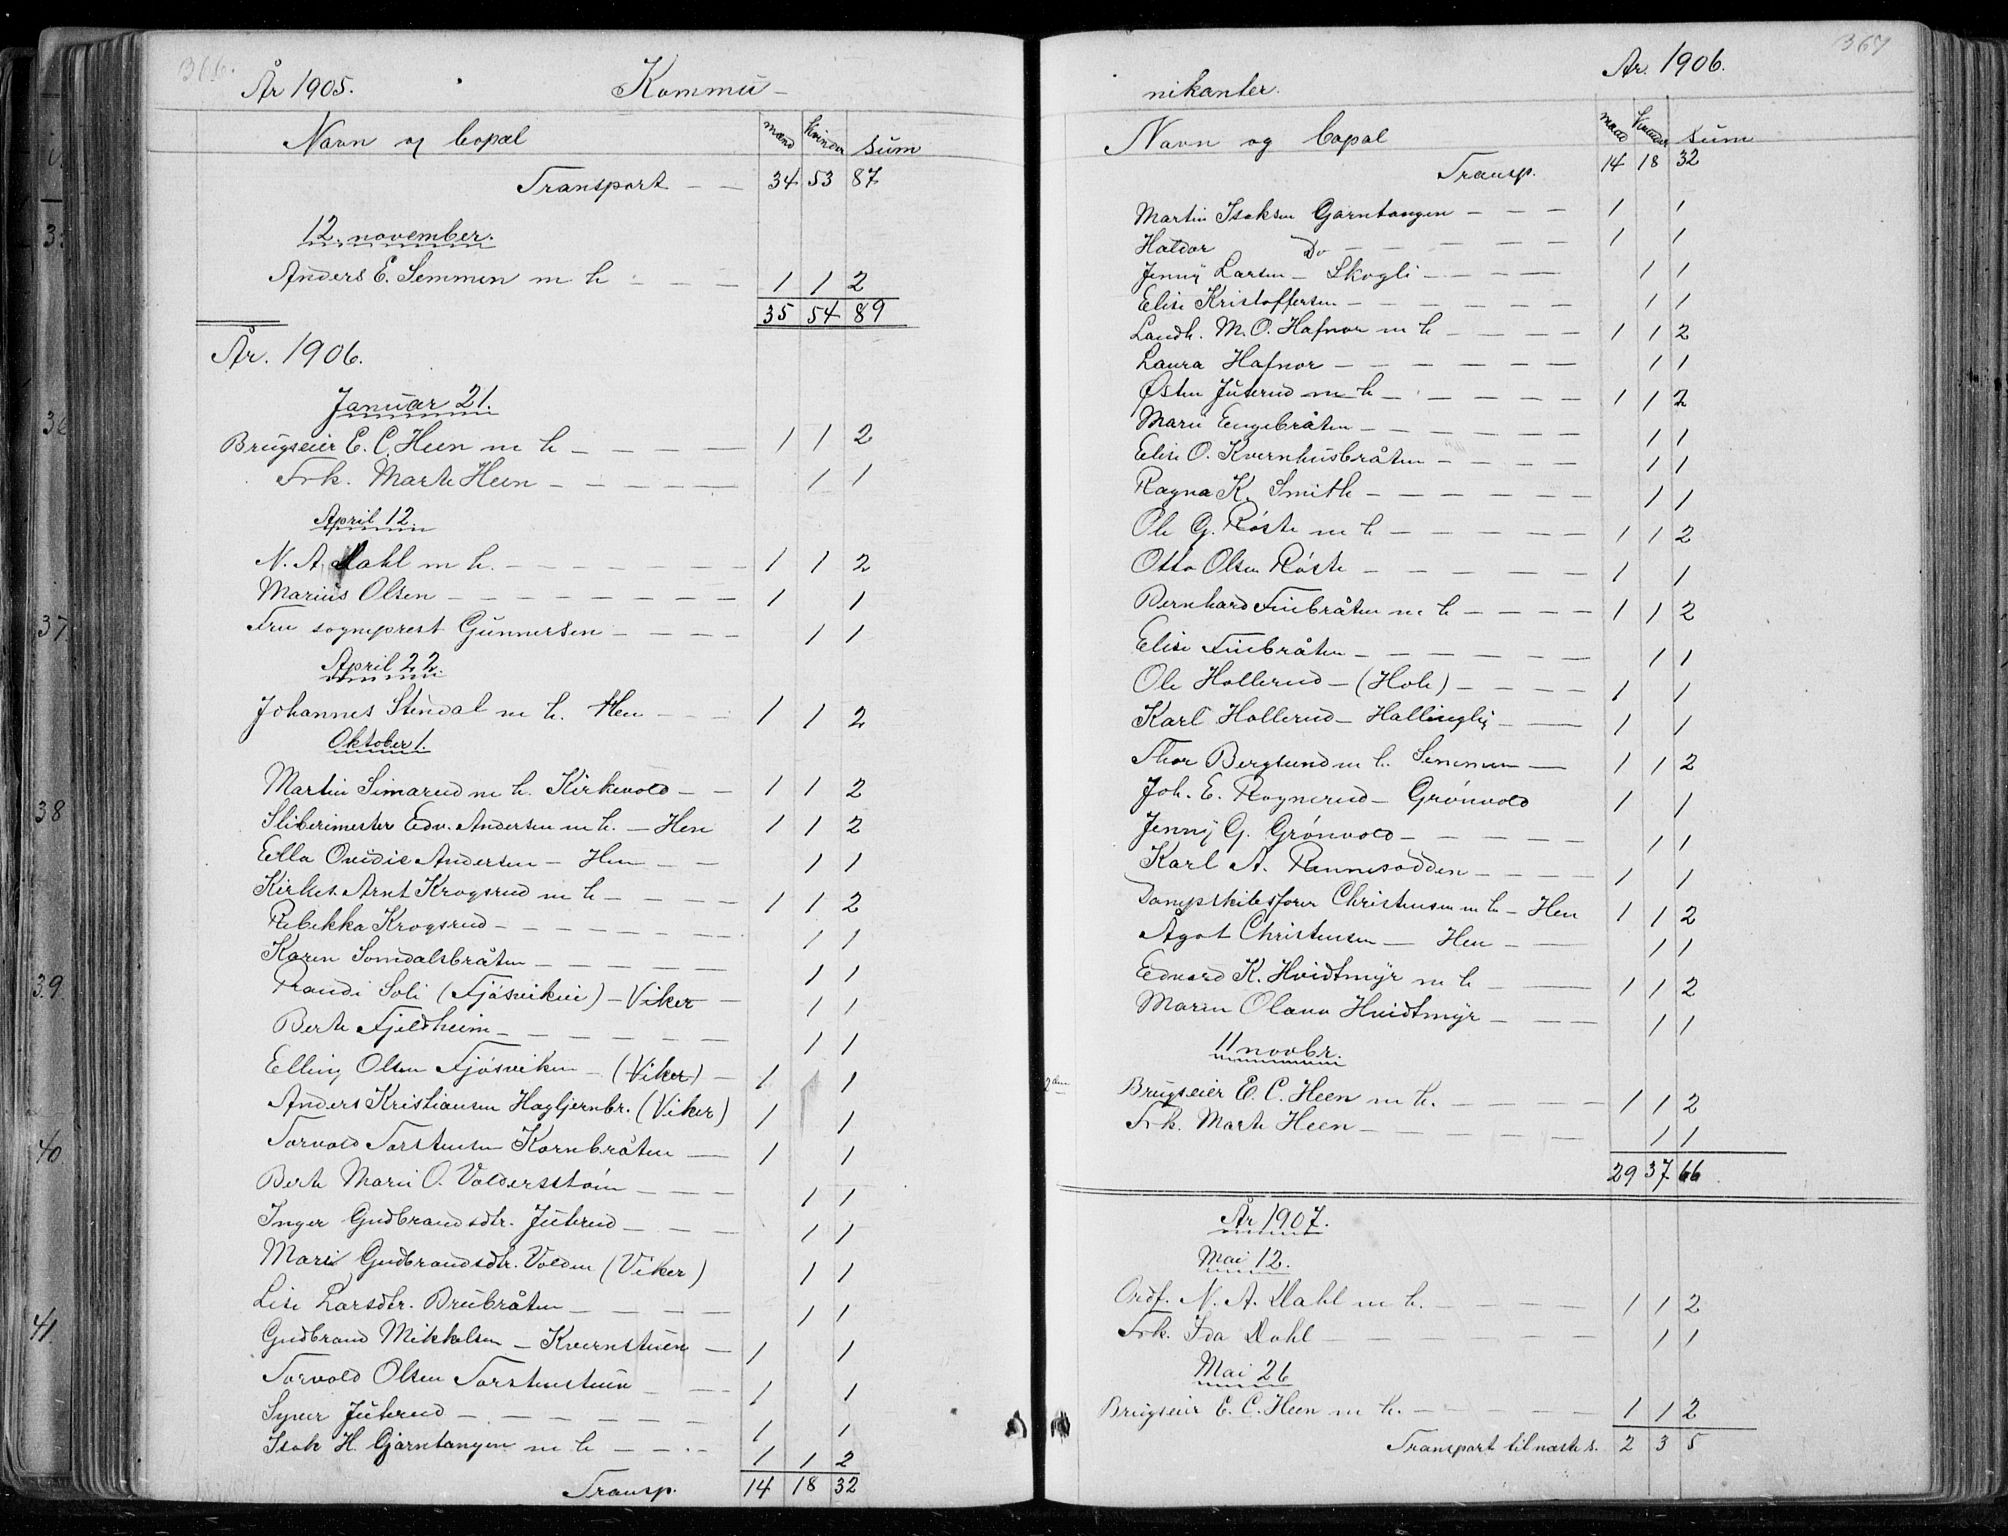 366.
År 1905. Kommu-
Navn og bopæl mænd kvinder sum
Transport — — 34 53 87
12. november.
Anders E. Semmen m h — — — 1 1 2
35 54 89
År. 1906.
Januar 21.
Brugseier E. C. Heen m h — — — — 1 1 2
Frk. Marte Heen — — — — — 1 1
April 12.
N. A. Dahl m h. — — — — — — 1 1 2
Marius Olsen — — — — — — — — 1 1
Fru sogneprest Gunnersen — — — — 1 1
April 22.
Johannes Stendal m h. Hen — — — 1 1 2
Oktober 1.
Martin Simarud m h. Kirkevold — — 1 1 2
Sliberimester Edv. Andersen m h. — Hen 1 1 2
Ella Ovidie Andersen — Hen — — 1 1
Kirkes. Arnt Krogsrud m h — — — — 1 1 2
Rebekka Krogsrud — — — — — — 1 1
Karen Somdalsbråten — — — — — 1 1
Randi Soli (Fjøsviken) — Viker — 1 1
Berte Fjeldheim — — — — — — 1 1
Elling Olsen Fjøsviken — (Viker) — 1 1
Anders Kristiansen Hagbjernbr. (Viker) 1 1
Torvald Torstensen Kornbråten — 1 1
Berte Marie O. Valdersstøin — — — 1 1
Inger Gudbrandsdtr. Juterud — — — 1 1
Mari Gudbrandsdtr. Volden (Viker) 1 1
Lise Larsdtr. Brubråten — — — — 1 1
Gudbrand Mikkelsen — Kvernstuen — 1 1
Torvald Olsen Torstenstuen — — — 1 1
Syver Juterud — — — — — — 1 1
Isak H. Gjarntangen m h — — — 1 1 2
Transp. 14 18 32
367
År. 1906.
nikanter.
Navn og bopæl mænd kvinder sum
Transp. 14 18 32
Martin Isaksen Garntangen — — — 1 1
Haldor Do — — — — — 1 1
Jenny Larsen — Skogli — — — — 1 1
Elise Kristoffersen — — — — — — 1 1
Landh. M. O. Hafnor m h — — — — 1 1 2
Laura Hafnor — — — — — — 1 1
Østen Juterud m h — — — — — 1 1 2
Marie Engebråten — — — — — — 1 1
Elise O. Kvernhusbråten — — — — 1 1
Ragna K. Smith — — — — — — 1 1
Ole G. Røste m h — — — — — 1 1 2
Otto Olsen Røste — — — — — — 1 1
Bernhard Finbråten m h — — — — 1 1 2
Elise Finbråten — — — — — — 1 1
Ole Hollerud — (Hole) — — — — 1 1
Karl Hollerud — Hallingby — — 1 1
Thor Berglund m h. Semmen — 1 1 2
Joh. E. Rognerud — Grønvold 1 1
Jenny G. Grønvold — — — — — 1 1
Karl A. Rennesodden — — — — 1 1
Dampskibsfører Christensen m h — Hen 1 1 2
Agot Christensen — Hen — — 1 1
Edvard K. Hvidtmyr m h — — 1 1 2
Maren Olava Hvidtmyr — — — 1 1
11 novbr.
Brugseier E. C. Heen m h. — — — — 1 1 2
Frk. Marte Heen — — — — — — 1 1
29 37 66
År 1907.
Mai 12.
Ordf. N. A. Dahl m h. — — — — — 1 1 2
Frk. Ida Dahl — — — — — — 1 1
Mai 26
Brugseier E. C. Heen m h. — — — — 1 1 2
Transport til næste s. 2 3 5